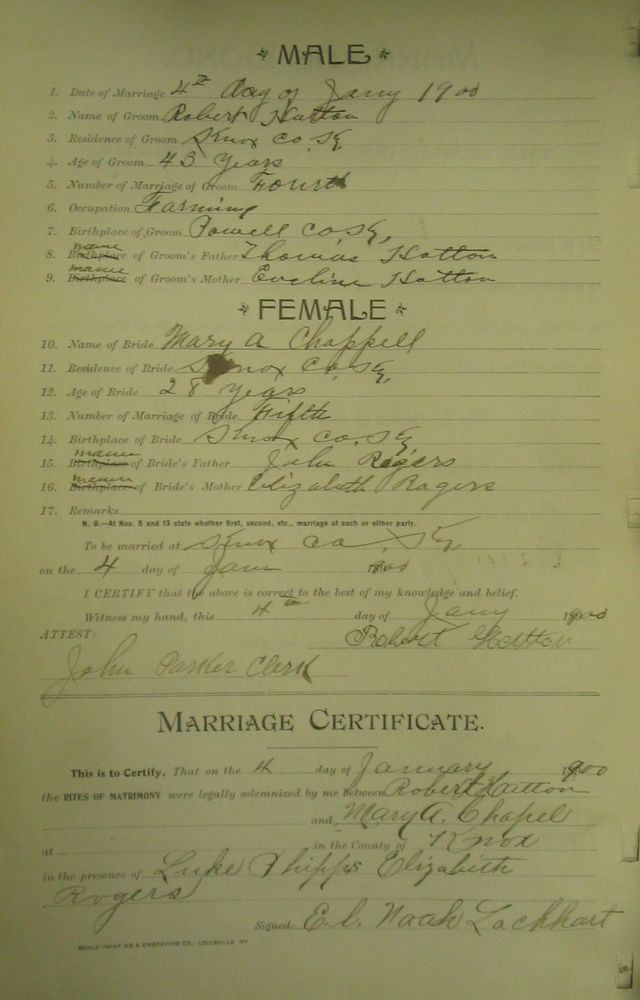 MALE
1. Date of Marriage 4th day of Jany 1900
2. Name of Groom Robert Hatton
3. Residence of Groom Knox Co, Ky
4. Age of Groom 43 years
5. Number of Marriage of Groom Fourth
6. Occupation Farming
7. Birthplace of Groom Powell Co Ky,
name
8. Birthplace of Groom's Father Thomas Hatton
name
9. Birthplace of Groom's Mother Eveline Hatton
FEMALE
10. Name of Bride Mary A Chappell
11. Residence of Bride Knox Co, Ky,
12. Age of Bride 28 years
13. Number of Marriage of Bride Fifth
14. Birthplace of Bride Knox Co, Ky,
name
15. Birthplace of Bride's Father John Rogers
name
16. Birthplace of Bride's Mother Elizabeth Rogers
17. Remarks
N. B.—At Nos. 5 and 13 state whether first, second, etc., marriage of each or either party.
To be married at Knox Co, Ky,
on the 4 day of Jany 1900
I CERTIFY that the above is correct to the best of my knowledge and belief.
Witness my hand, this 4th day of Jany 1900
ATTEST: Robert Hatton
John Parker Clerk
MARRIAGE CERTIFICATE.
This is to Certify, That on the 4 day of January 1900
the RITES OF MATRIMONY were legally solemnized by me between Robert Hatton
and Mary A. Chapel
at in the County of Knox
in the presence of Luke Phipps Elizabeth
Rogers
Signed. E. L. Noah Lackhart
PRINTING & ENGRAVING CO., LOUISVILLE, KY.